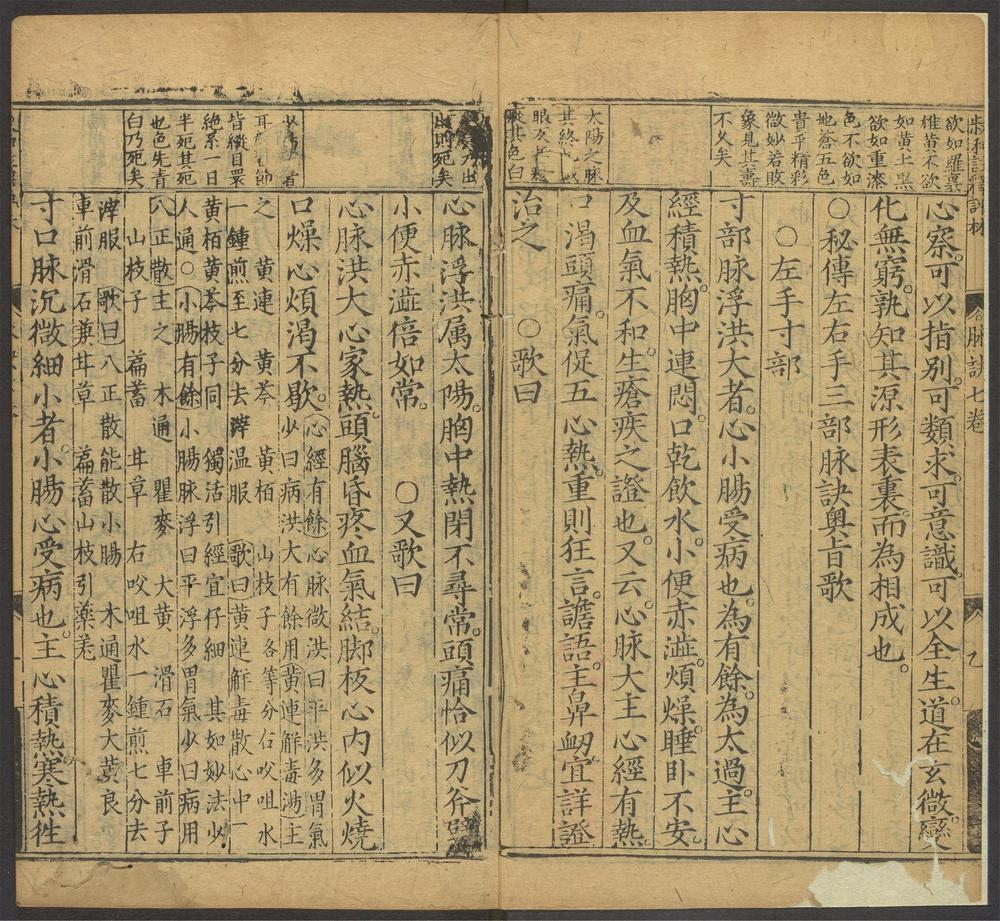 欲如羅裹
雄黃不欲
如黃土黑
欲如重漆
色不欲如
地蒼五色
貴乎精彩
微妙若敗
象見其壽
不久矣
太陽之脉
其終也
眼反
其色白
脉訣七卷
心察可以指別可類求可意識可以全生道在玄微變
化無窮孰知其源形表裏而為相成也
○秘傳左右手三部脉訣奧旨歌
○左手寸部
寸部脉浮洪大者心小腸受病也為有餘為太過主心
經積熱胸中連悶口乾飲水小便赤澁煩燥睡卧不安
及血氣不和生瘡疾之證也又云心脉大主心經有熱
口渴頭痛氣促五心熱重則狂言譫語主鼻衂宜詳證
治之 ○歌曰
則死矣
耳
皆縱目睘
絶系一日
半死其死
也色先青
白乃死矣
心脉浮洪属太陽胸中熱閉不尋常頭痛恰似刀斧
小便赤澁倍如常 ○又歌曰
心脉洪大心家熱頭腦昏疼血氣結脚板心内似火燒
口燥心煩渴不歇
心經有餘心脉微洪曰平洪多胃氣
少曰病洪大有餘用黃連解毒湯主
之 黃連 黃芩 黃栢 山枝子各等分右㕮咀水
一鍾煎至七分去滓温服 歌曰黃連解毒散心中一
黃栢黃芩枝子同 獨活引經宜仔細 其如妙法少
人通○小腸有餘小腸脉浮曰平浮多胃氣少曰病用
八正散主之 木通 瞿麥 大黃 滑石 車前子
山枝子 萹蓄 甘草 右㕮咀水一鍾煎七分去
滓服 歌曰八正散能散小腸 木通瞿麥大黃良
車前滑石兼甘草 萹蓄山枝引藥羌
寸口脉沉微細小者小腸心受病也主心積熱寒熱徃